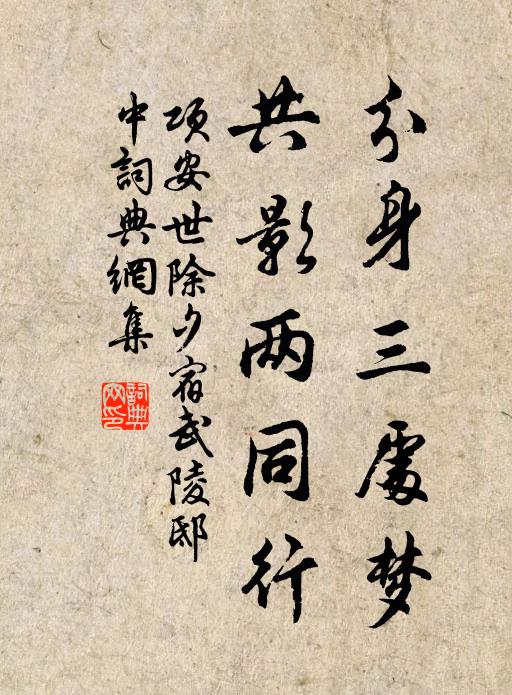 分身三處梦
共影两同行
项安世除夕宿武陵邸
中詞典網集
詞典
网印